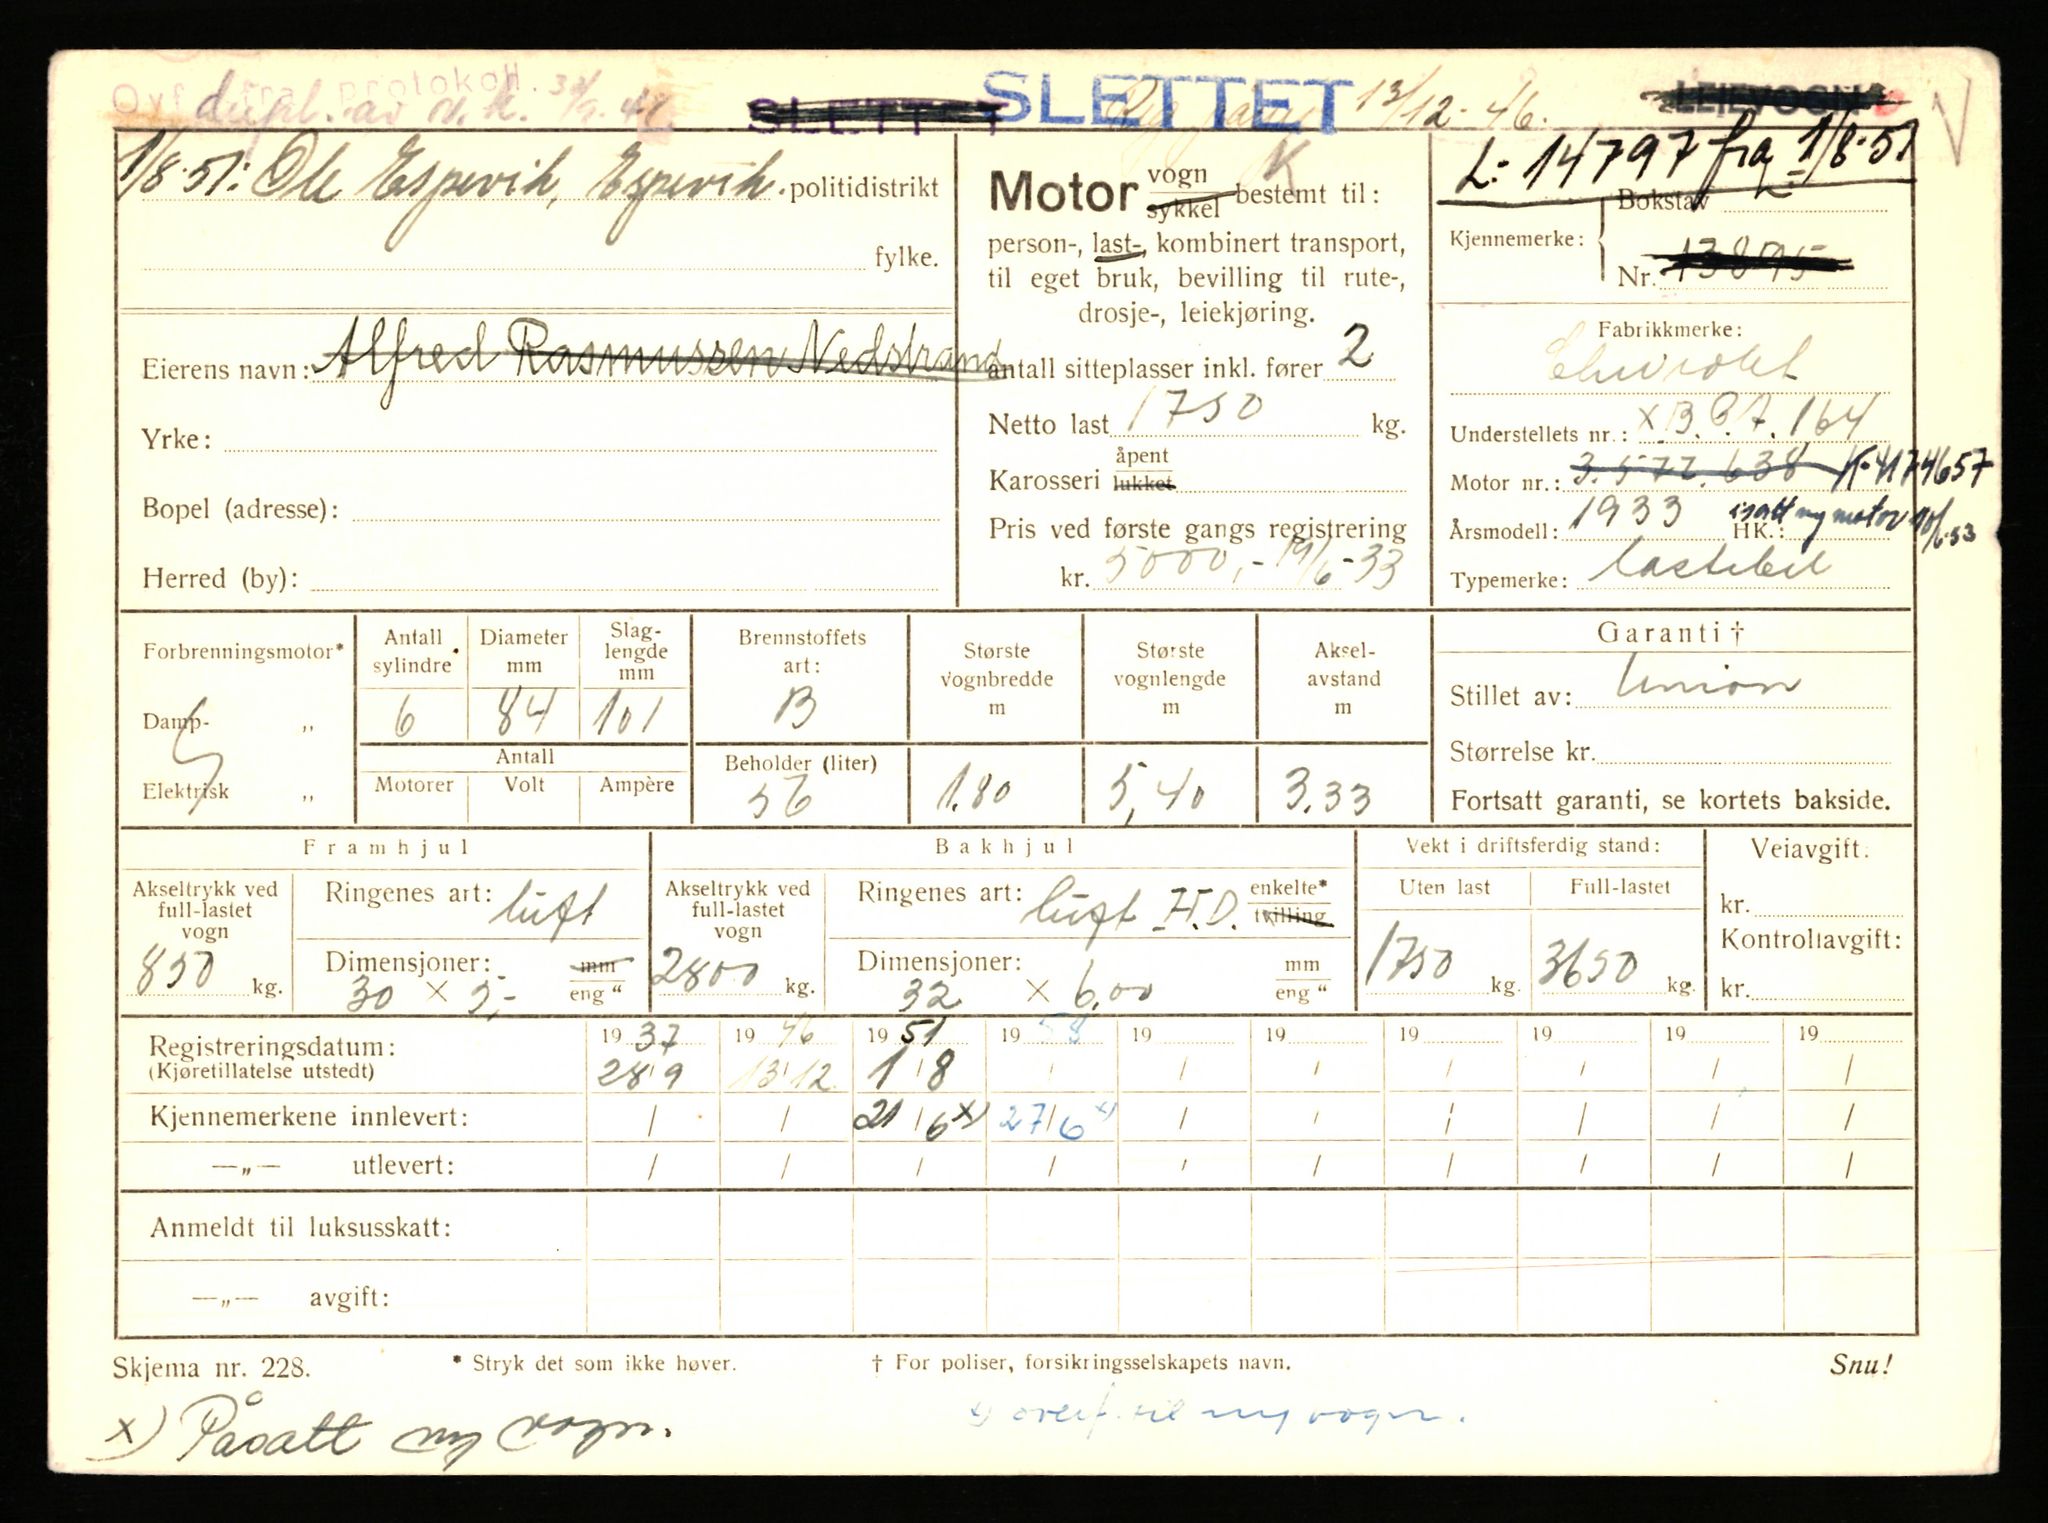 Ovf. fra protokoll.
dupl. av v.k.
SLETTET
SLETTET
Reg. 13/12-46.
LEIEVOGN
1/8-51: Ole Espevik, Espevik. politidistrikt
fylke.
Eierens navn: Alfred Rasmussen Nedstrand
Yrke:
Bopel (adresse):
Herred (by):
Motor vogn sykkel bestemt til: K
person-, last-, kombinert transport,
til eget bruk, bevilling til rute-,
drosje-, leiekjøring.
antall sitteplasser inkl. fører 2
Netto last 1750 kg.
Karosseri åpent lukket
Pris ved første gangs registrering
kr. 5000,- 19/6-33
L-14797 fra 1/8-51
Kjennemerke: Bokstav L-
Nr. 13895
Fabrikkmerke:
Chevrolet
Understellets nr.: X.B.P.A. 164
Motor nr.: 3.572.638 K-4174657
Årsmodell: 1933 HK.: isatt ny motor 10/6-53
Typemerke: lastebil
Forbrenningsmotor*
Damp- „
Elektrisk „
Antall sylindre 6
Diameter mm 84
Slaglengde mm 101
Antall
Motorer Volt Ampère
Brennstoffets art: B
Beholder (liter) 56
Største vognbredde m 1.80
Største vognlengde m 5,40
Akselavstand m 3.33
Garanti †
Stillet av: Union
Størrelse kr.
Fortsatt garanti, se kortets bakside.
Framhjul
Akseltrykk ved full-lastet vogn 850 kg.
Ringenes art: luft
Dimensjoner: 30 × 5,- mm eng "
Bakhjul
Akseltrykk ved full-lastet vogn 2800 kg.
Ringenes art: luft H.D. enkelte* tvilling
Dimensjoner: 32 × 6,00 mm eng "
Vekt i driftsferdig stand:
Uten last 1750 kg.
Full-lastet 3650 kg.
Veiavgift:
kr.
Kontrollavgift:
kr.
Registreringsdatum: 1937 1946 1951 1958 19 19 19 19 19 19
(Kjøretillatelse utstedt) 28/9 13/12 1/8 / / / / / / /
Kjennemerkene innlevert: / / 21/6 x) 27/6 x) / / / / / /
—„— utlevert: / / / / / / / / / /
Anmeldt til luksusskatt:
—„— avgift:
Skjema nr. 228. * Stryk det som ikke høver. † For poliser, forsikringsselskapets navn. Snu!
x) Påsatt ny vogn.
x) overf. til ny vogn.